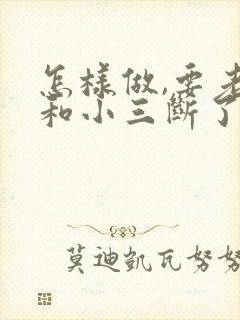 怎樣做,要老
和小三斷了
莫迪凱瓦努努